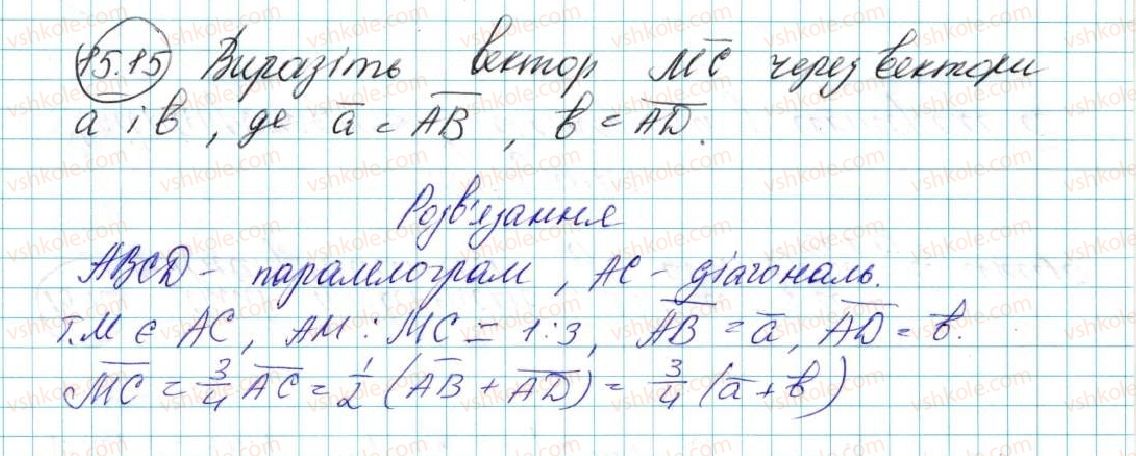 15.15 Виразіть вектор M̅C̅ через вектори
a і b, де a̅ = A̅B̅, b̅ = A̅D̅.
Розв'язання
ABCD - паралелограм, AC - діагональ.
т. M ∈ AC, AM : MC = 1:3, A̅B̅ = a̅, A̅D̅ = b̅.
M̅C̅ = 3/4 A̅C̅ = 1/2 (A̅B̅ + A̅D̅) = 3/4 (a̅ + b̅)